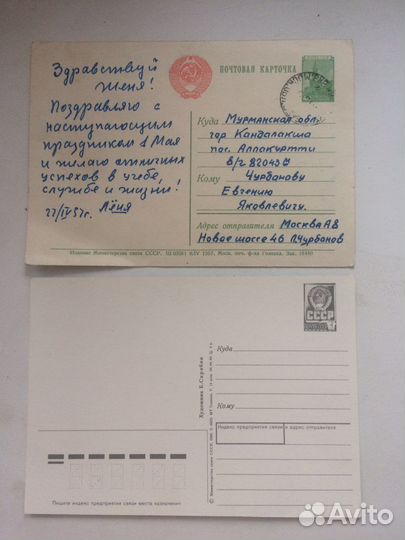 Здравствуй
Женя!
Поздравляю с
наступающим
праздником 1 Мая
и желаю отличных
успехов в учебе,
службе и жизни!
27/IV 57г. Лёня
ПОЧТОВАЯ КАРТОЧКА
Куда Мурманская обл.
гор Кандалакша
пос. Аллакуртти
в/ч 82045
Кому Чурбанову
Евгению
Яковлевичу.
Адрес отправителя Москва А8
Новое шоссе 46 Л.Чурбанов
Издание Министерства связи СССР.
СССР
Куда
Кому
Индекс предприятия связи и адрес отправителя
Художник Б. Скрябин
© Министерство связи СССР.
Пишите индекс предприятия связи места назначения
Avito